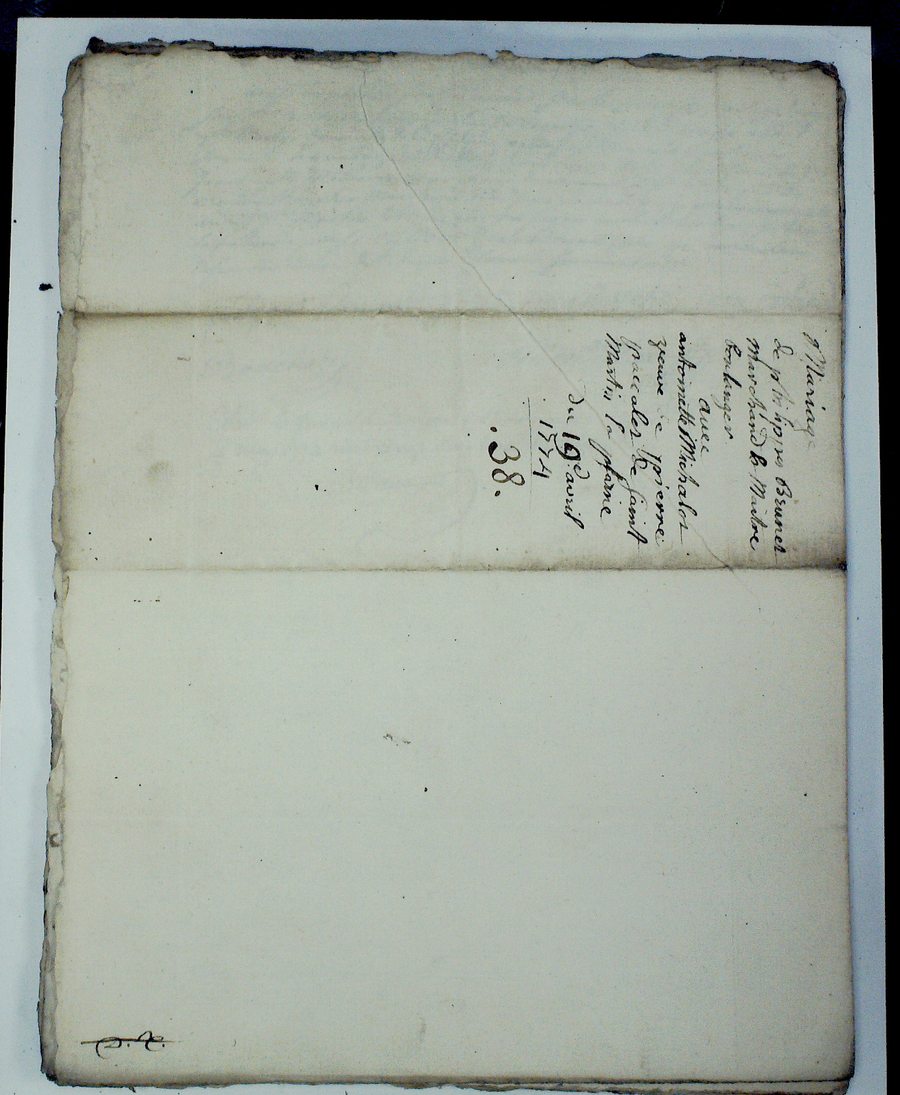 Mariage
de philippes Brunet
Marchand & Maitre
boulanger
avec
antoinette Michalot
veuve de pierre
paccalet de Saint
Martin la plaine
du 19e avril
1774
.38.